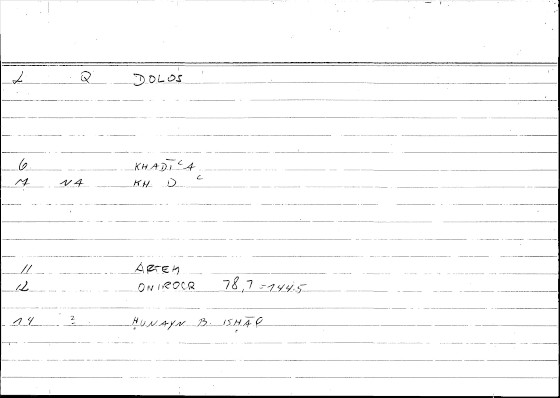 L Q DOLOS
6 KHADĪʿA
M NA KH D ʿ
11 ARTEM
12 ONIROCR 78,7=1445
14 2 ḤUNAYN B. ISḤĀQ